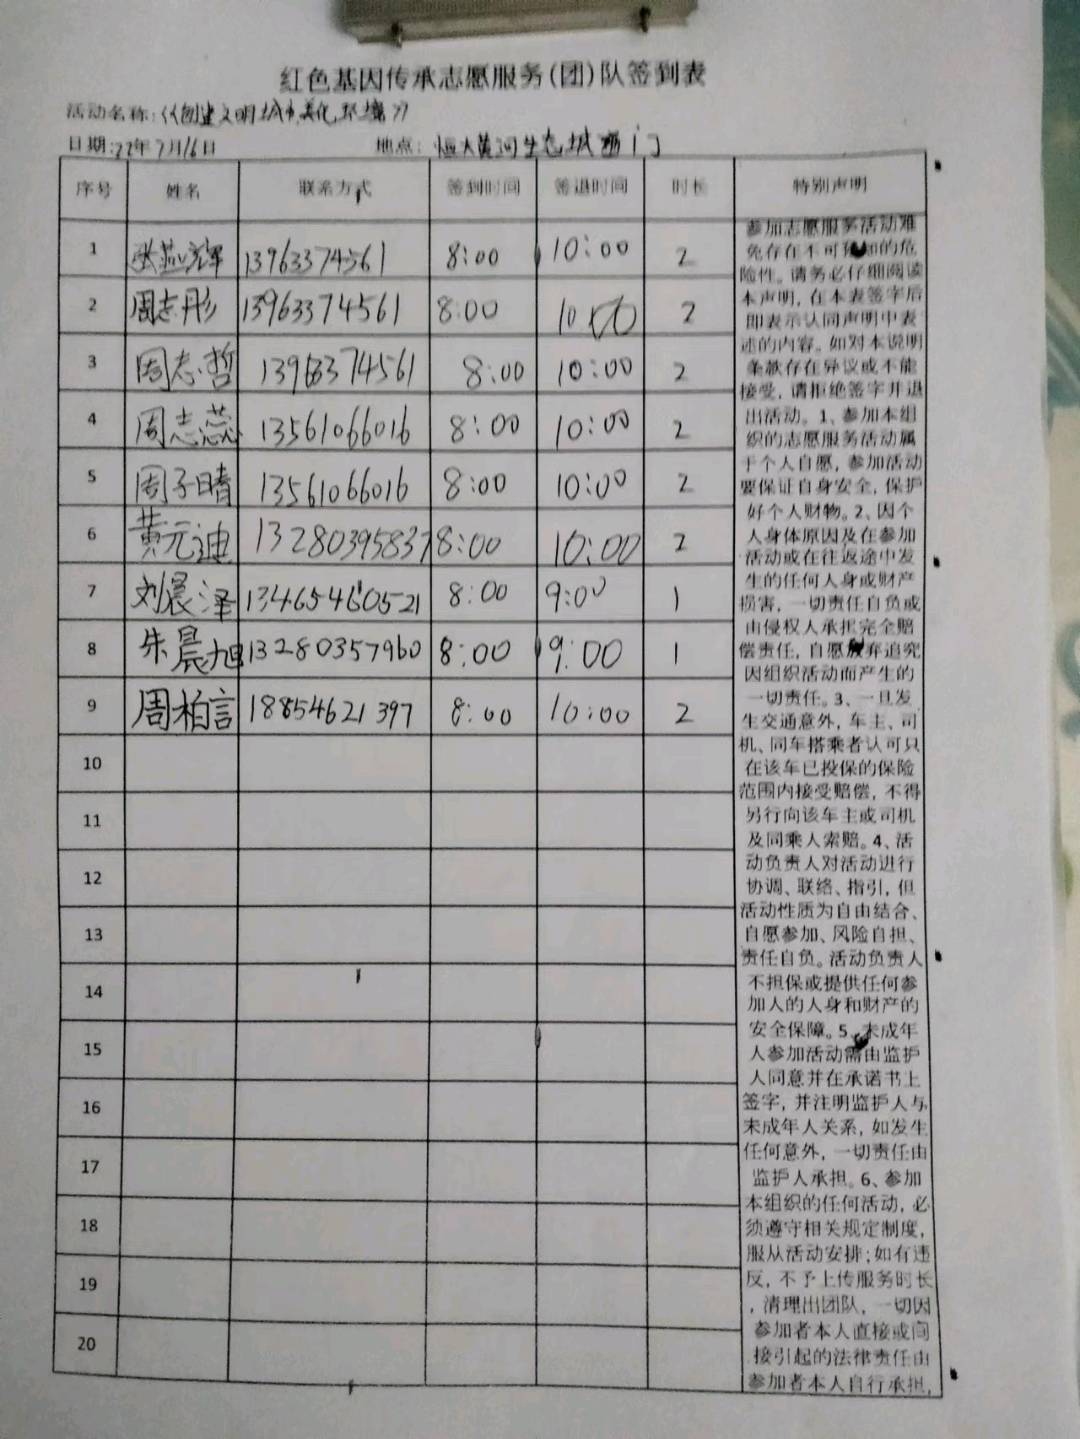 红色基因传承志愿服务(团)队签到表
活动名称:《创建文明城市,美化环境》
日期:22年7月16日 地点: 恒大黄河生态城西门
序号 姓名 联系方式 签到时间 签退时间 时长 特别声明
1 张燕辉 13963374561 8:00 10:00 2
2 周志彤 13963374561 8:00 10:00 2
3 周志哲 13963374561 8:00 10:00 2
4 周志蕊 13561066016 8:00 10:00 2
5 周子晴 13561066016 8:00 10:00 2
6 黄元迪 13280395837 8:00 10:00 2
7 刘晨泽 13465460521 8:00 9:00 1
8 朱晨旭 13280357960 8:00 9:00 1
9 周柏言 18854621397 8:00 10:00 2
10
11
12
13
14
15
16
17
18
19
20
参加志愿服务活动难
免存在不可预知的危
险性。请务必仔细阅读
本声明,在本表签字后
即表示认同声明中表
述的内容。如对本说明
条款存在异议或不能
接受,请拒绝签字并退
出活动。1、参加本组
织的志愿服务活动属
于个人自愿,参加活动
要保证自身安全,保护
好个人财物。2、因个
人身体原因及在参加
活动或在往返途中发
生的任何人身或财产
损害,一切责任自负或
由侵权人承担完全赔
偿责任,自愿放弃追究
因组织活动而产生的
一切责任。3、一旦发
生交通意外,车主、司
机、同车搭乘者认可只
在该车已投保的保险
范围内接受赔偿,不得
另行向该车主或司机
及同乘人索赔。4、活
动负责人对活动进行
协调、联络、指引,但
活动性质为自由结合、
自愿参加、风险自担、
责任自负。活动负责人
不担保或提供任何参
加人的人身和财产的
安全保障。5、未成年
人参加活动需由监护
人同意并在承诺书上
签字,并注明监护人与
未成年人关系,如发生
任何意外,一切责任由
监护人承担。6、参加
本组织的任何活动,必
须遵守相关规定制度,
服从活动安排;如有违
反,不予上传服务时长
,清理出团队,一切因
参加者本人直接或间
接引起的法律责任由
参加者本人自行承担,